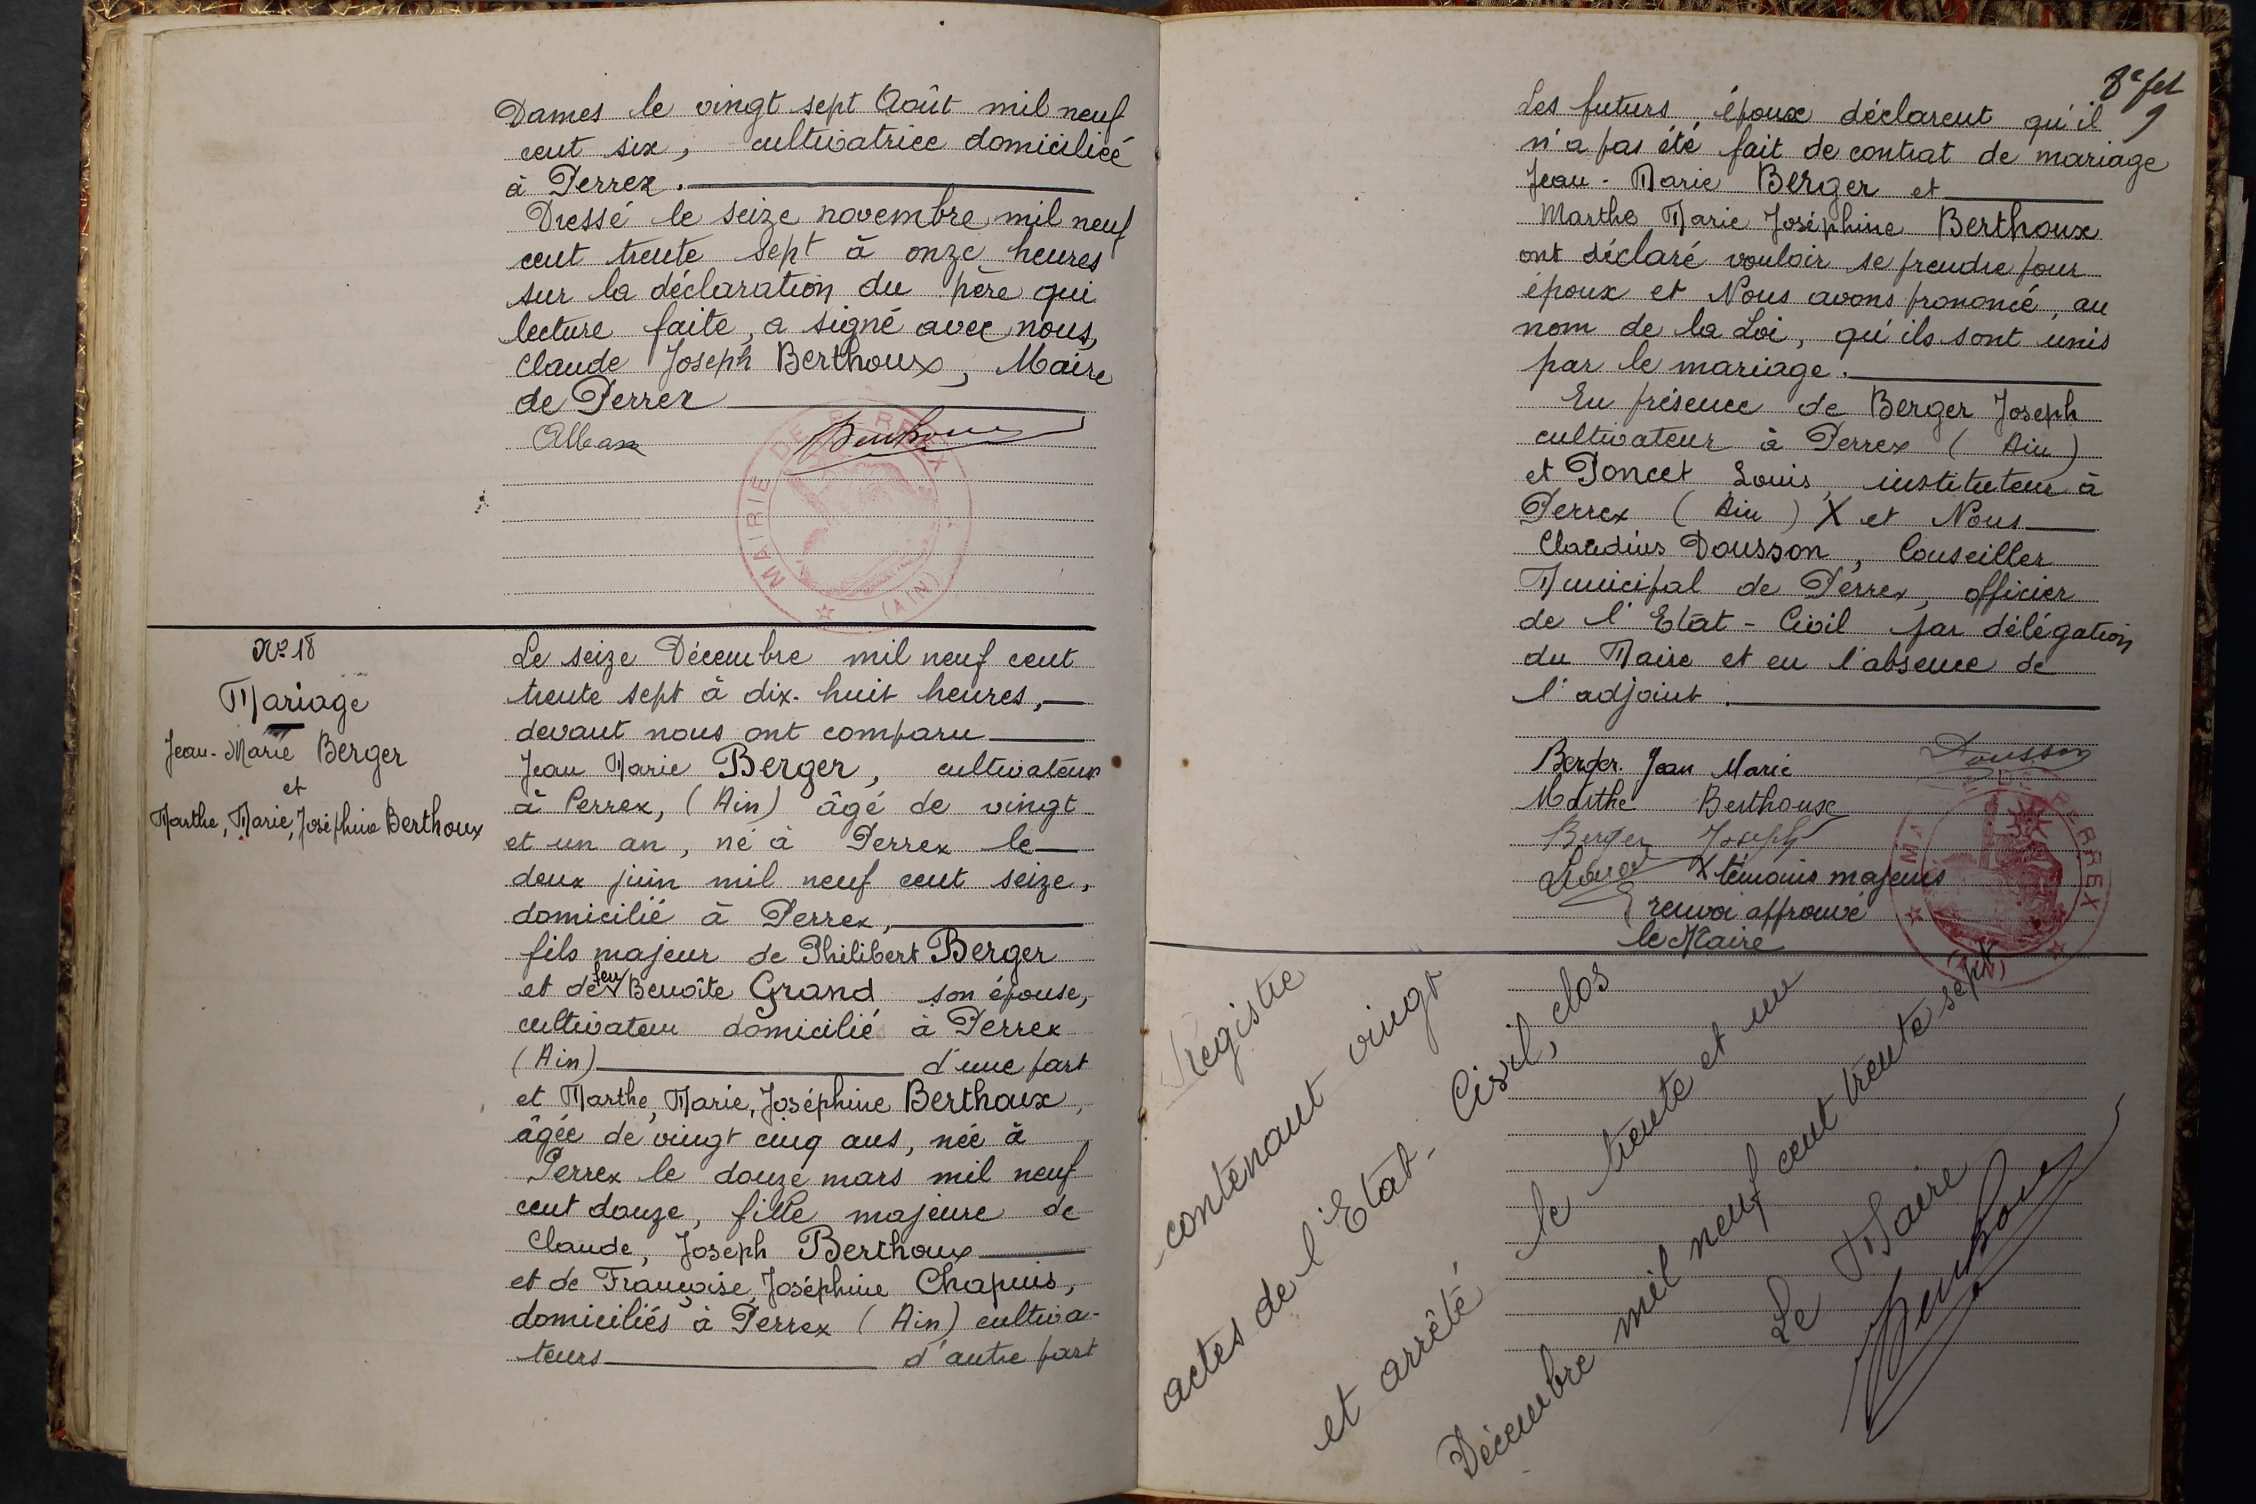 Dames le vingt sept Août mil neuf
cent six, cultivatrice domiciliée
à Perrex.
Dressé le seize novembre mil neuf
cent trente sept à onze heures
sur la déclaration du père qui
lecture faite, a signé avec nous,
Claude Joseph Berthoux, Maire
de Perrex
MAIRIE DE PERREX
(AIN)
No 18
Mariage
Jean-Marie Berger
et
Marthe, Marie, Joséphine Berthoux
Le seize Décembre mil neuf cent
trente sept à dix-huit heures,
devant nous ont comparu
Jean Marie Berger, cultivateur
à Perrex, (Ain) âgé de vingt
et un an, né à Perrex le
deux juin mil neuf cent seize,
domicilié à Perrex,
fils majeur de Philibert Berger
et de feu Benoîte Grand son épouse,
cultivateur domicilié à Perrex
(Ain) d'une part
et Marthe, Marie, Joséphine Berthoux,
âgée de vingt cinq ans, née à
Perrex le douze mars mil neuf
cent douze, fille majeure de
Claude, Joseph Berthoux
et de Françoise, Joséphine Chapuis,
domiciliés à Perrex (Ain) cultiva-
teurs d'autre part
Les futurs époux déclarent qu'il
n'a pas été fait de contrat de mariage
Jean-Marie Berger et
Marthe Marie Joséphine Berthoux
ont déclaré vouloir se prendre pour
époux et Nous avons prononcé, au
nom de la Loi, qu'ils sont unis
par le mariage.
En présence de Berger Joseph
cultivateur à Perrex (Ain)
et Poncet Louis, instituteur à
Perrex (Ain) X et Nous
Claudius Dousson, Conseiller
Municipal de Perrex, officier
de l'Etat-Civil par délégation
du Maire et en l'absence de
l'adjoint.
Berger Jean Marie Dousson
Marthe Berthoux
Berger Joseph
X témoins majeurs
renvoi approuvé
le Maire
Registre
contenant vingt
actes de l'Etat-Civil, clos
et arrêté le trente et un
Décembre mil neuf cent trente sept
Le Maire